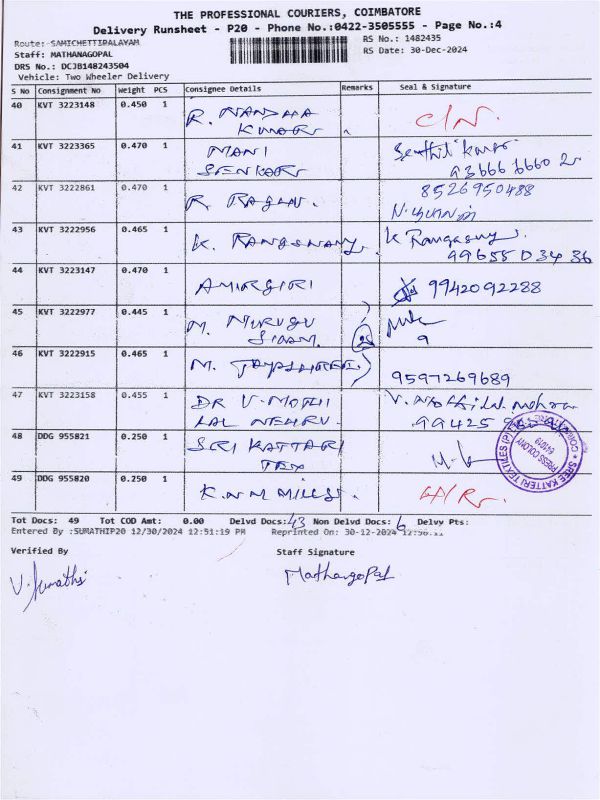 THE PROFESSIONAL COURIERS, COIMBATORE
Delivery Runsheet - P20 - Phone No.:0422-3505555 - Page No.:4
Route: SAMICHETTIPALAYAM RS No.: 1482435
Staff: MATHANAGOPAL RS Date: 30-Dec-2024
DRS No.: DCJB148243504
Vehicle: Two Wheeler Delivery
S No Consignment No Weight PCS Consignee Details Remarks Seal & Signature
40 KVT 3223148 0.450 1 R. NANDHA KUMAR C/N.
41 KVT 3223365 0.470 1 MANI Senthil Kumar
42 KVT 3222861 0.470 1 R. RAGHU. 8526950488
43 KVT 3222956 0.465 1 K. RANGSWAMY. K Rangaswy
99655 03436
44 KVT 3223147 0.470 1 AMIRGIRI 9942092288
45 KVT 3222977 0.445 1 M. MURUGU
9
46 KVT 3222915 0.465 1 M. 9597269689
47 KVT 3223158 0.455 1 DR V. MOTHI
LAL NEHRU. 99425
48 DDG 955821 0.250 1 SRI KATTARI
TEX
SREE KATTERI TEXTILES (P)
PRESS COLONY
641019
49 DDG 955820 0.250 1 K.N.M MILLS.
Tot Docs: 49 Tot COD Amt: 0.00 Delvd Docs: 43 Non Delvd Docs: 6 Delvy Pts:
Entered By :SUMATHIP20 12/30/2024 12:51:19 PM Reprinted On: 30-12-2024
Verified By Staff Signature
V. Sumathi Mathangopal